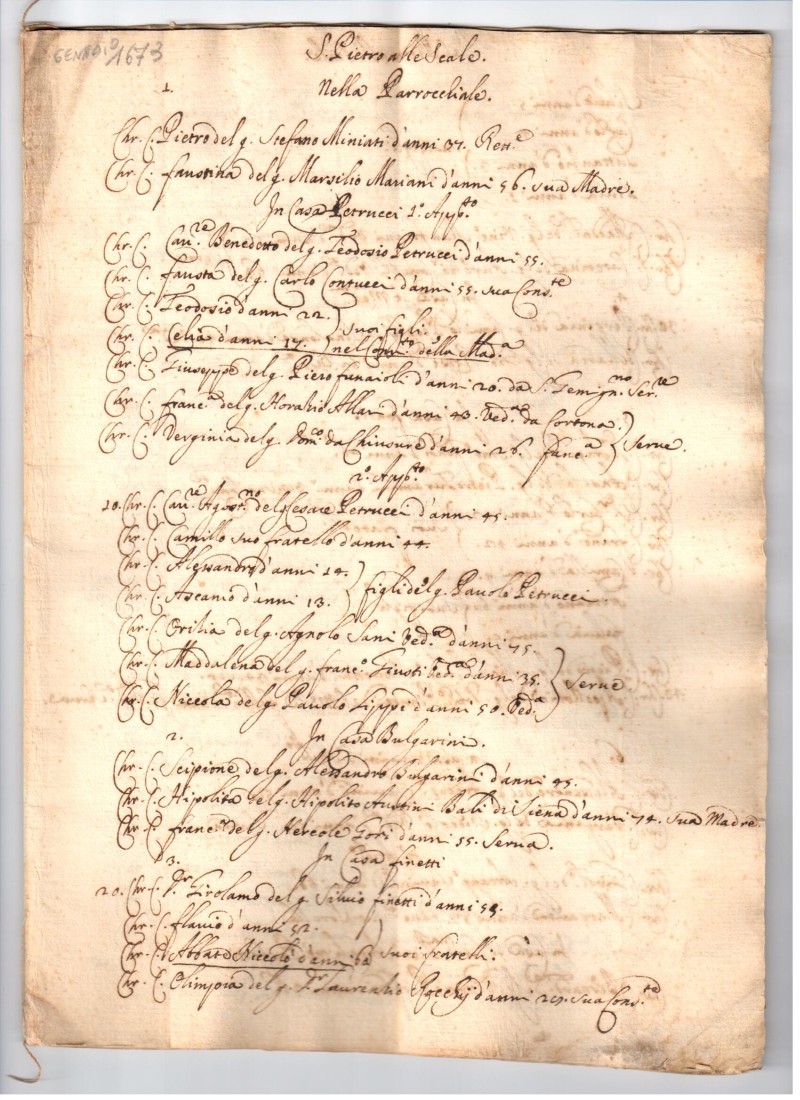 GENNAIO 1673
S. Pietro alle Scale.
1. Nella Parrochiale.
Chr. C. Pietro del q. Stefano Miniati d'anni 37. Rett.e
Chr. C. Faustina del q. Marsilio Mariani d'anni 56. sua Madre.
In Casa Petrucci 1.º App.to
Chr. C. Cau.re Benedetto del q. Teodosio Petrucci d'anni 55.
Chr. C. Fausta del q. Carlo Contucci d'anni 55. sua Cons.te
Chr. C. Teodosio d'anni 22. } suoi figli.
Chr. C. Celia d'anni 17. } nel Conu.to della Mad.a
Chr. C. Giuseppe del q. Piero Funaioli d'anni 20. da S. Gemign.no Ser.re
Chr. C. Franc.a del q. Horatio Allari d'anni 43. Ved.a da Cortona. }
Chr. C. Verginia del q. Dom.co da Chiusure d'anni 26. Fanc.a } Serue.
2.º App.to
10. Chr. C. Cau.re Agost.no del q. Cesare Petrucci d'anni 45.
Chr. C. Camillo suo fratello d'anni 44.
Chr. C. Alessandro d'anni 14. }
Chr. C. Ascanio d'anni 13. } figli del q. Pauolo Petrucci.
Chr. C. Orilia del q. Agnolo Sani Ved.a d'anni 45. }
Chr. C. Maddalena del q. Franc.o Giusti Ved.a d'anni 35. } Serue.
Chr. C. Niccola del q. Pauolo Lippi d'anni 50. Ved.a }
2. In Casa Bulgarini.
Chr. C. Scipione del q. Alessandro Bulgarini d'anni 45.
Chr. C. Hipolita del q. Hipolito Austini Balì di Siena d'anni 74. sua Madre
Chr. C. Franc.a del q. Hercole Gori d'anni 55. Serua.
3. In Casa Finetti
20. Chr. C. Dr. Girolamo del q. Siluio Finetti d'anni 54.
Chr. C. Flauio d'anni 52. }
Chr. C. Abbate Niccolò d'anni suoi fratelli.
Chr. C. Olimpia del q. Dr. Laurentio Rocchij d'anni 29. sua Cons.te